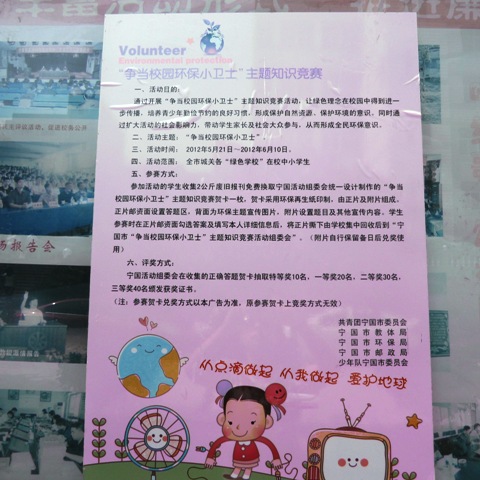 Volunteer
Environmental protection
“争当校园环保小卫士”主题知识竞赛
一、活动目的：
通过开展“争当校园环保小卫士”主题知识竞赛活动，让绿色理念在校园中得到进一
步传播，培养青少年勤俭节约的良好习惯，形成保护自然资源、保护环境的意识，同时通
过扩大活动的社会影响力，带动学生家长及社会大众参与，从而形成全民环保意识。
二、活动主题：“争当校园环保小卫士”
三、活动时间：2012年5月21日～2012年6月10日。
四、活动范围：全市城关各“绿色学校”在校中小学生
五、参赛方式：
参加活动的学生收集2公斤废旧报刊免费换取宁国活动组委会统一设计制作的“争当
校园环保小卫士”主题知识竞赛贺卡一枚，贺卡采用环保再生纸印制，由正片及附片组成。
正片邮资面设置答题区，背面为环保主题宣传图片，附片设置题目及其他宣传内容。学生
参赛时在正片邮资面勾选答案及填写本人详细信息后，将正片撕下由学校集中回收后到“宁
国市“争当校园环保小卫士”主题知识竞赛活动组委会”。（附片自行保留备日后兑奖使
用）
六、评奖方式：
宁国活动组委会在收集的正确答题贺卡抽取特等奖10名，一等奖20名，二等奖30名，
三等奖40名颁发获奖证书。
（注：参赛贺卡兑奖方式以本广告为准，原参赛贺卡上竞奖方式无效）
共青团宁国市委员会
宁国市教体局
宁国市环保局
宁国市邮政局
少年队宁国市委员会
从点滴做起 从我做起 爱护地球
报告会